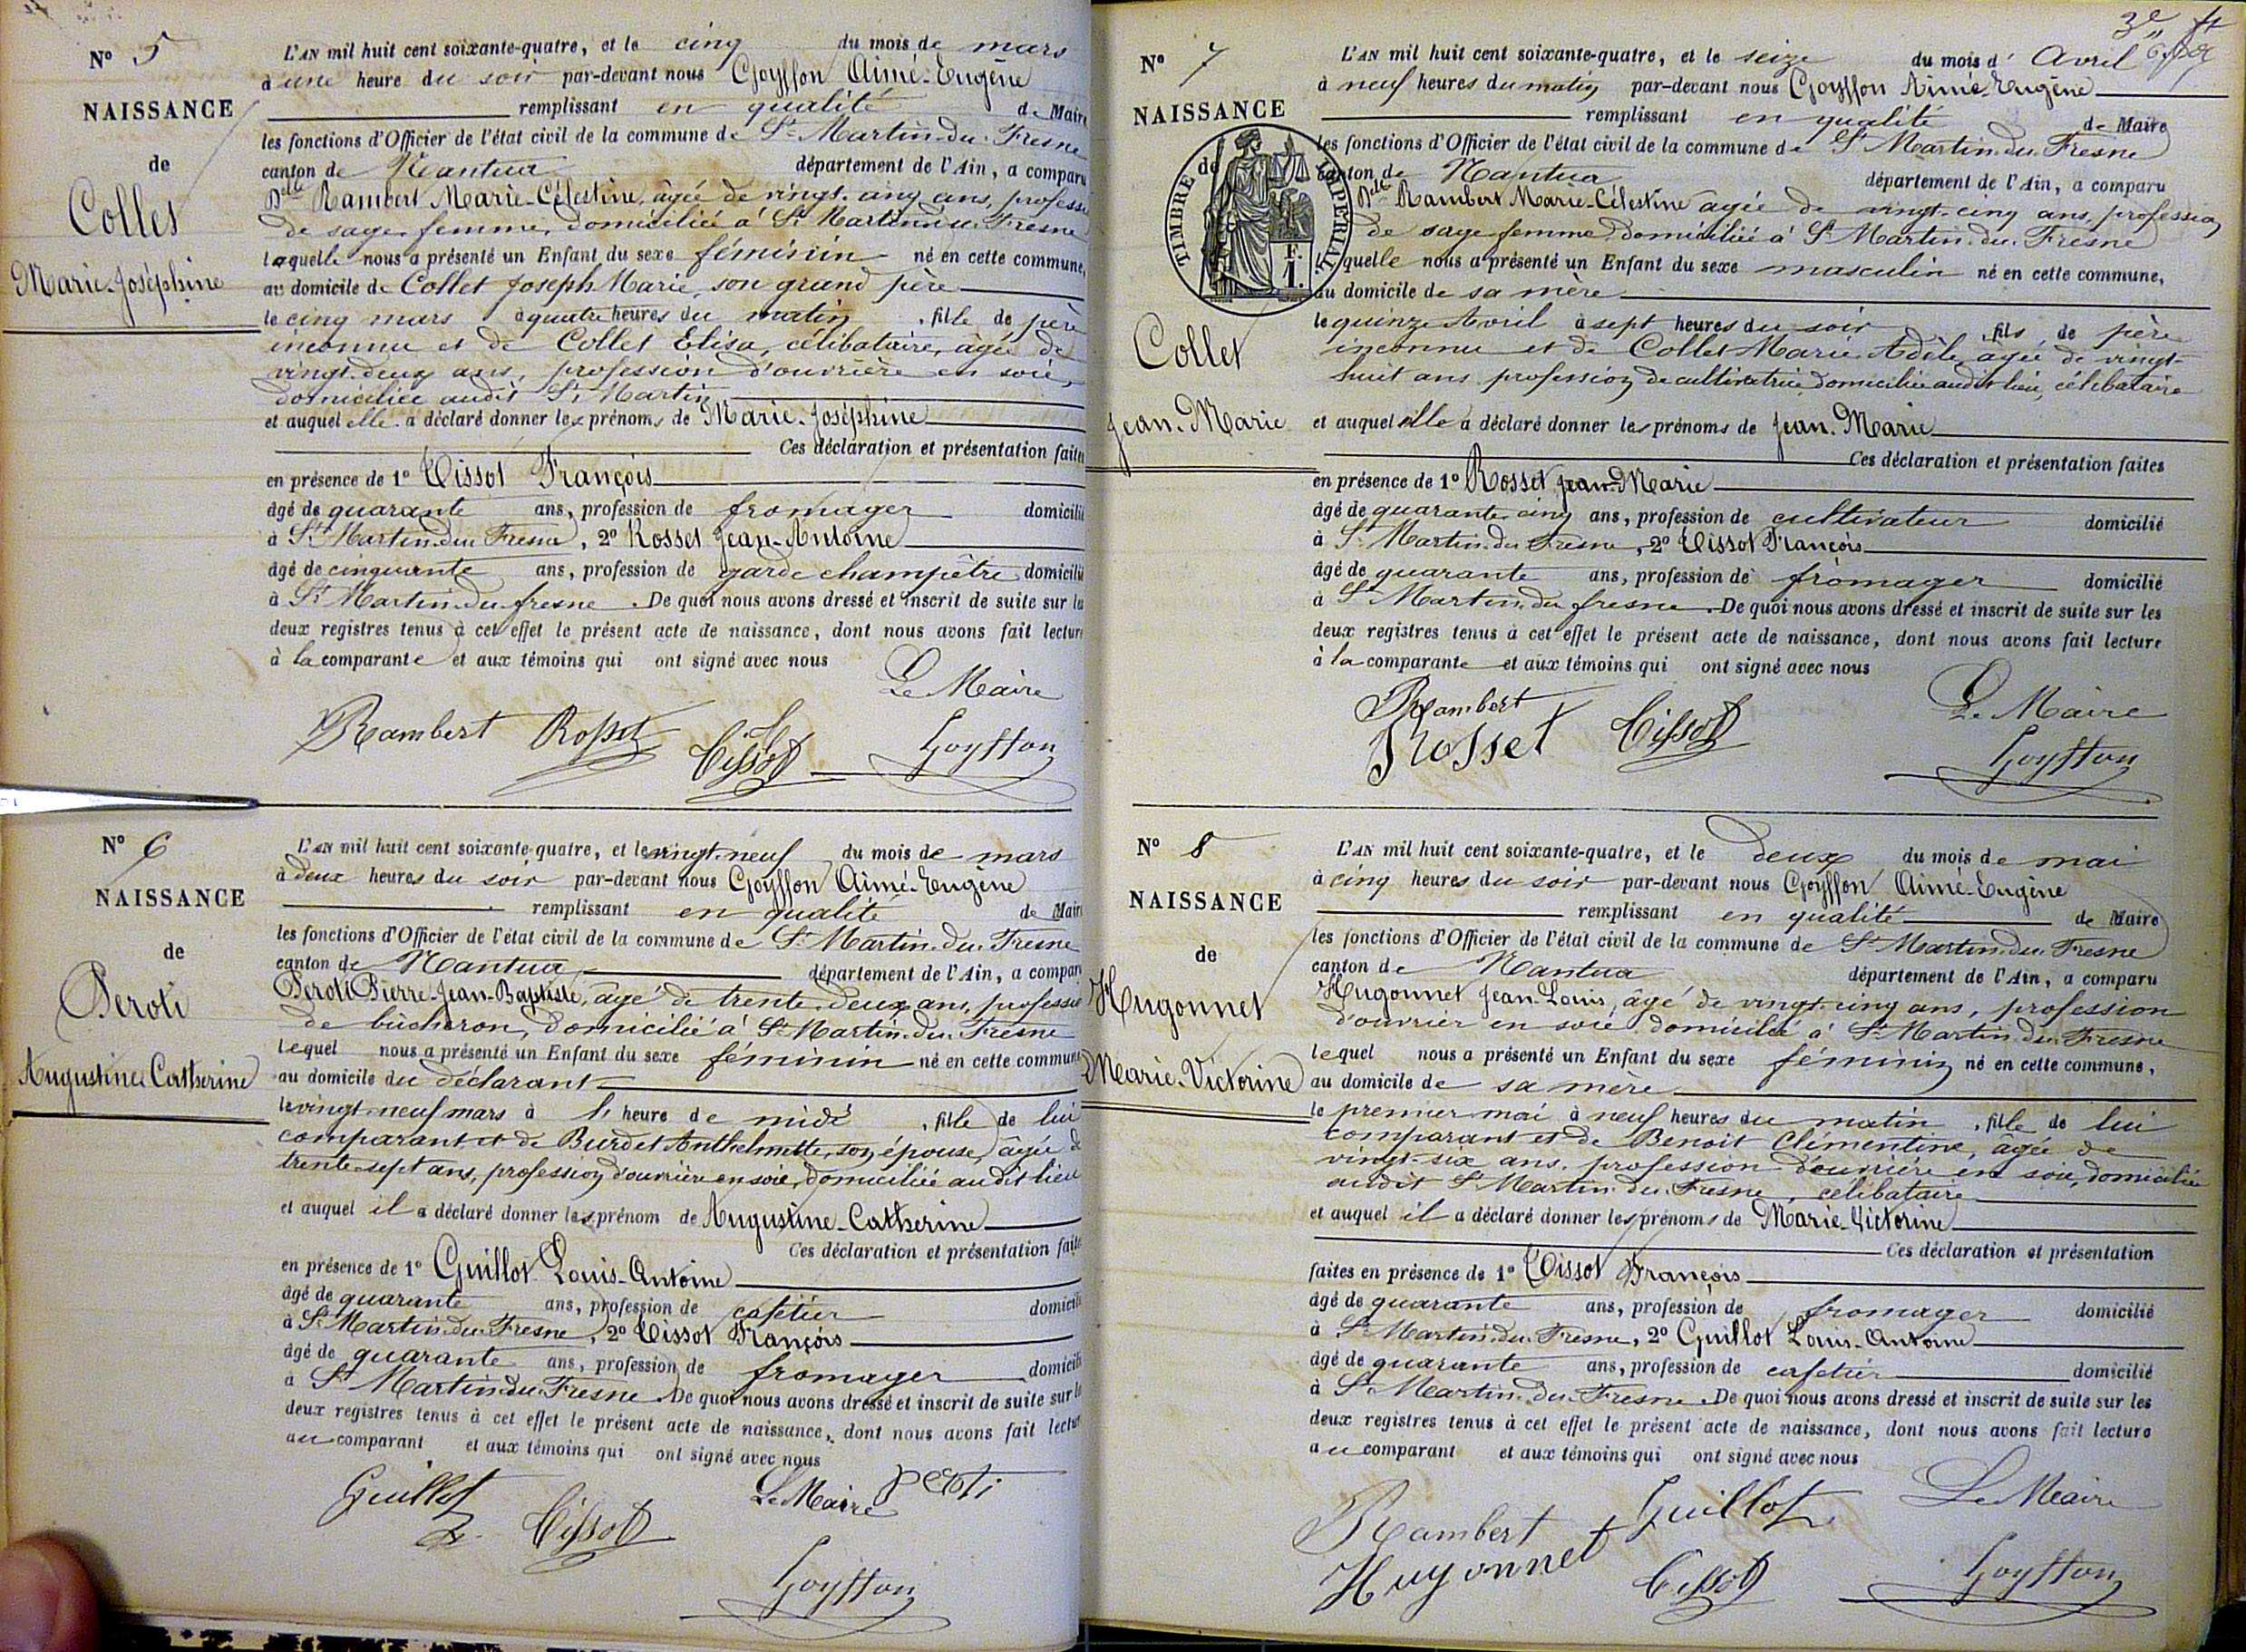 N° 5
NAISSANCE
de
Collet
Marie-Joséphine
L'AN mil huit cent soixante-quatre, et le cinq du mois de mars
à une heure du soir par-devant nous Goyffon Aimé-Eugène
remplissant en qualité de Maire
les fonctions d'Officier de l'état civil de la commune de St Martin-du-Fresne
canton de Nantua département de l'Ain, a comparu
Dlle Rambert Marie-Célestine, âgée de vingt-cinq ans, professi
de sage-femme, domiciliée à St Martin-du-Fresne
laquelle nous a présenté un Enfant du sexe féminin né en cette commune,
au domicile de Collet Joseph Marie, son grand père
le cinq mars à quatre heures du matin, fille de père
inconnu et de Collet Elisa, célibataire, âgée de
vingt-deux ans, profession d'ouvrière en soie,
domiciliée audit St Martin
et auquel elle a déclaré donner les prénoms de Marie-Joséphine
Ces déclaration et présentation faites
en présence de 1° Tissot François
âgé de quarante ans, profession de fromager domicilié
à St Martin-du-Fresne, 2° Rosset Jean-Antoine
âgé de cinquante ans, profession de garde champêtre domicilié
à St Martin-du-fresne. De quoi nous avons dressé et inscrit de suite sur les
deux registres tenus à cet effet le présent acte de naissance, dont nous avons fait lecture
à la comparante et aux témoins qui ont signé avec nous
Le Maire
Rambert Rosset Tissot Goyffon
N° 6
NAISSANCE
de
Peroti
Augustine Catherine
L'AN mil huit cent soixante-quatre, et le vingt-neuf du mois de mars
à deux heures du soir par-devant nous Goyffon Aimé-Eugène
remplissant en qualité de Maire
les fonctions d'Officier de l'état civil de la commune de St Martin-du-Fresne
canton de Nantua département de l'Ain, a comparu
Peroti Pierre-Jean-Baptiste, âgé de trente-deux ans, professi
de bûcheron, domicilié à St Martin-du-Fresne
lequel nous a présenté un Enfant du sexe féminin né en cette commune
au domicile du déclarant
le vingt-neuf mars à l' heure de midi, fille de lui
comparant et de Burdet Anthelmette, son épouse, âgée de
trente-sept ans, profession d'ouvrière en soie, domiciliée au dit lieu
et auquel il a déclaré donner les prénom de Augustine-Catherine
Ces déclaration et présentation faites
en présence de 1° Guillot Louis-Antoine
âgé de quarante ans, profession de cafetier domicilié
à St Martin-du-Fresne, 2° Tissot François
âgé de quarante ans, profession de fromager domicilié
à St Martin-du-Fresne. De quoi nous avons dressé et inscrit de suite sur le
deux registres tenus à cet effet le présent acte de naissance, dont nous avons fait lectur
au comparant et aux témoins qui ont signé avec nous
Guillot Tissot Le Maire Peroti
Goyffon
3e
N° 7
NAISSANCE
de
TIMBRE IMPERIAL
F.
1.
Collet
Jean-Marie
L'AN mil huit cent soixante-quatre, et le seize du mois d' Avril
à neuf heures du matin par-devant nous Goyffon Aimé-Eugène
remplissant en qualité de Maire
les fonctions d'Officier de l'état civil de la commune de St Martin-du-Fresne
canton de Nantua département de l'Ain, a comparu
Dlle Rambert Marie-Célestine âgée de vingt-cinq ans, profession
de sage femme domiciliée à St Martin-du-Fresne
laquelle nous a présenté un Enfant du sexe masculin né en cette commune,
au domicile de sa mère
le quinze Avril à sept heures du soir, fils de père
inconnu et de Collet Marie Adèle, âgée de vingt-
huit ans profession de cultivatrice domiciliée audit lieu, célibataire
et auquel elle a déclaré donner les prénoms de Jean-Marie
Ces déclaration et présentation faites
en présence de 1° Rosset Jean-Marie
âgé de quarante-cinq ans, profession de cultivateur domicilié
à St Martin-du-Fresne, 2° Tissot François
âgé de quarante ans, profession de fromager domicilié
à St Martin-du-fresne. De quoi nous avons dressé et inscrit de suite sur les
deux registres tenus à cet effet le présent acte de naissance, dont nous avons fait lecture
à la comparante et aux témoins qui ont signé avec nous
Rambert Le Maire
Rosset Tissot Goyffon
N° 8
NAISSANCE
de
Hugonnet
Marie-Victorine
L'AN mil huit cent soixante-quatre, et le deux du mois de mai
à cinq heures du soir par-devant nous Goyffon Aimé-Eugène
remplissant en qualité de Maire
les fonctions d'Officier de l'état civil de la commune de St Martin-du-Fresne
canton de Nantua département de l'Ain, a comparu
Hugonnet Jean-Louis, âgé de vingt-cinq ans, profession
d'ouvrier en soie domicilié à St Martin-du-Fresne
lequel nous a présenté un Enfant du sexe féminin né en cette commune,
au domicile de sa mère
le premier mai à neuf heures du matin, fille de lui
comparant et de Benoit Clémentine, âgée de
vingt-six ans, profession d'ouvrière en soie, domiciliée
audit St Martin-du-Fresne, célibataire
et auquel il a déclaré donner les prénoms de Marie-Victorine
Ces déclaration et présentation
faites en présence de 1° Tissot François
âgé de quarante ans, profession de fromager domicilié
à St Martin-du-Fresne, 2° Guillot Louis-Antoine
âgé de quarante ans, profession de cafetier domicilié
à St Martin-du-Fresne. De quoi nous avons dressé et inscrit de suite sur les
deux registres tenus à cet effet le présent acte de naissance, dont nous avons fait lecture
au comparant et aux témoins qui ont signé avec nous
Rambert Guillot Le Maire
Hugonnet Tissot Goyffon